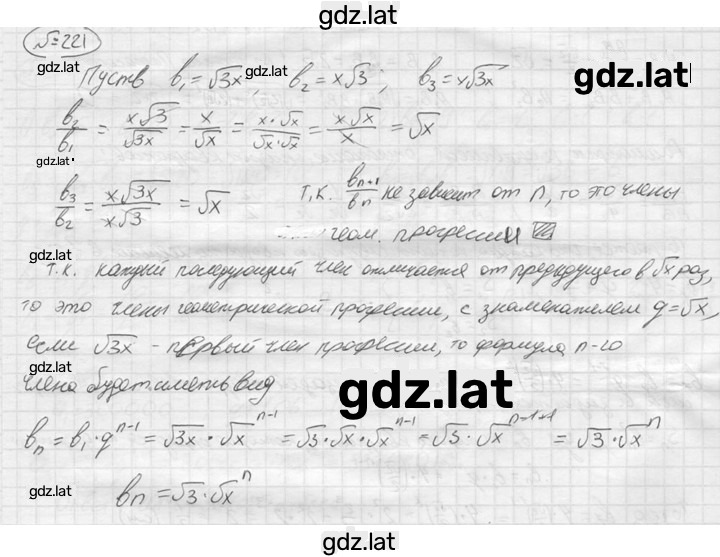 gdz.lat
№221
gdz.lat
Пусть b₁ = √3x, b₂ = x√3; b₃ = x√3x
gdz.lat
b₂/b₁ = x√3/√3x = x/√x = x·√x/√x·√x = x√x/x = √x
gdz.lat
b₃/b₂ = x√3x/x√3 = √x т.к. bₙ₊₁/bₙ не зависит от n, то это члены
геом. прогрессии
gdz.lat
т.к. каждый последующий член отличается от предыдущего в √x раз,
то это члены геометрической прогрессии, с знаменателем q=√x,
если √3x - первый член прогрессии, то формула n-го
gdz.lat
члена будет иметь вид
gdz.lat
bₙ = b₁·qⁿ⁻¹ = √3x · √xⁿ⁻¹ = √3·√x·√xⁿ⁻¹ = √3·√xⁿ⁻¹⁺¹ = √3·√xⁿ
gdz.lat
bₙ = √3·√xⁿ
gdz.lat
gdz.lat